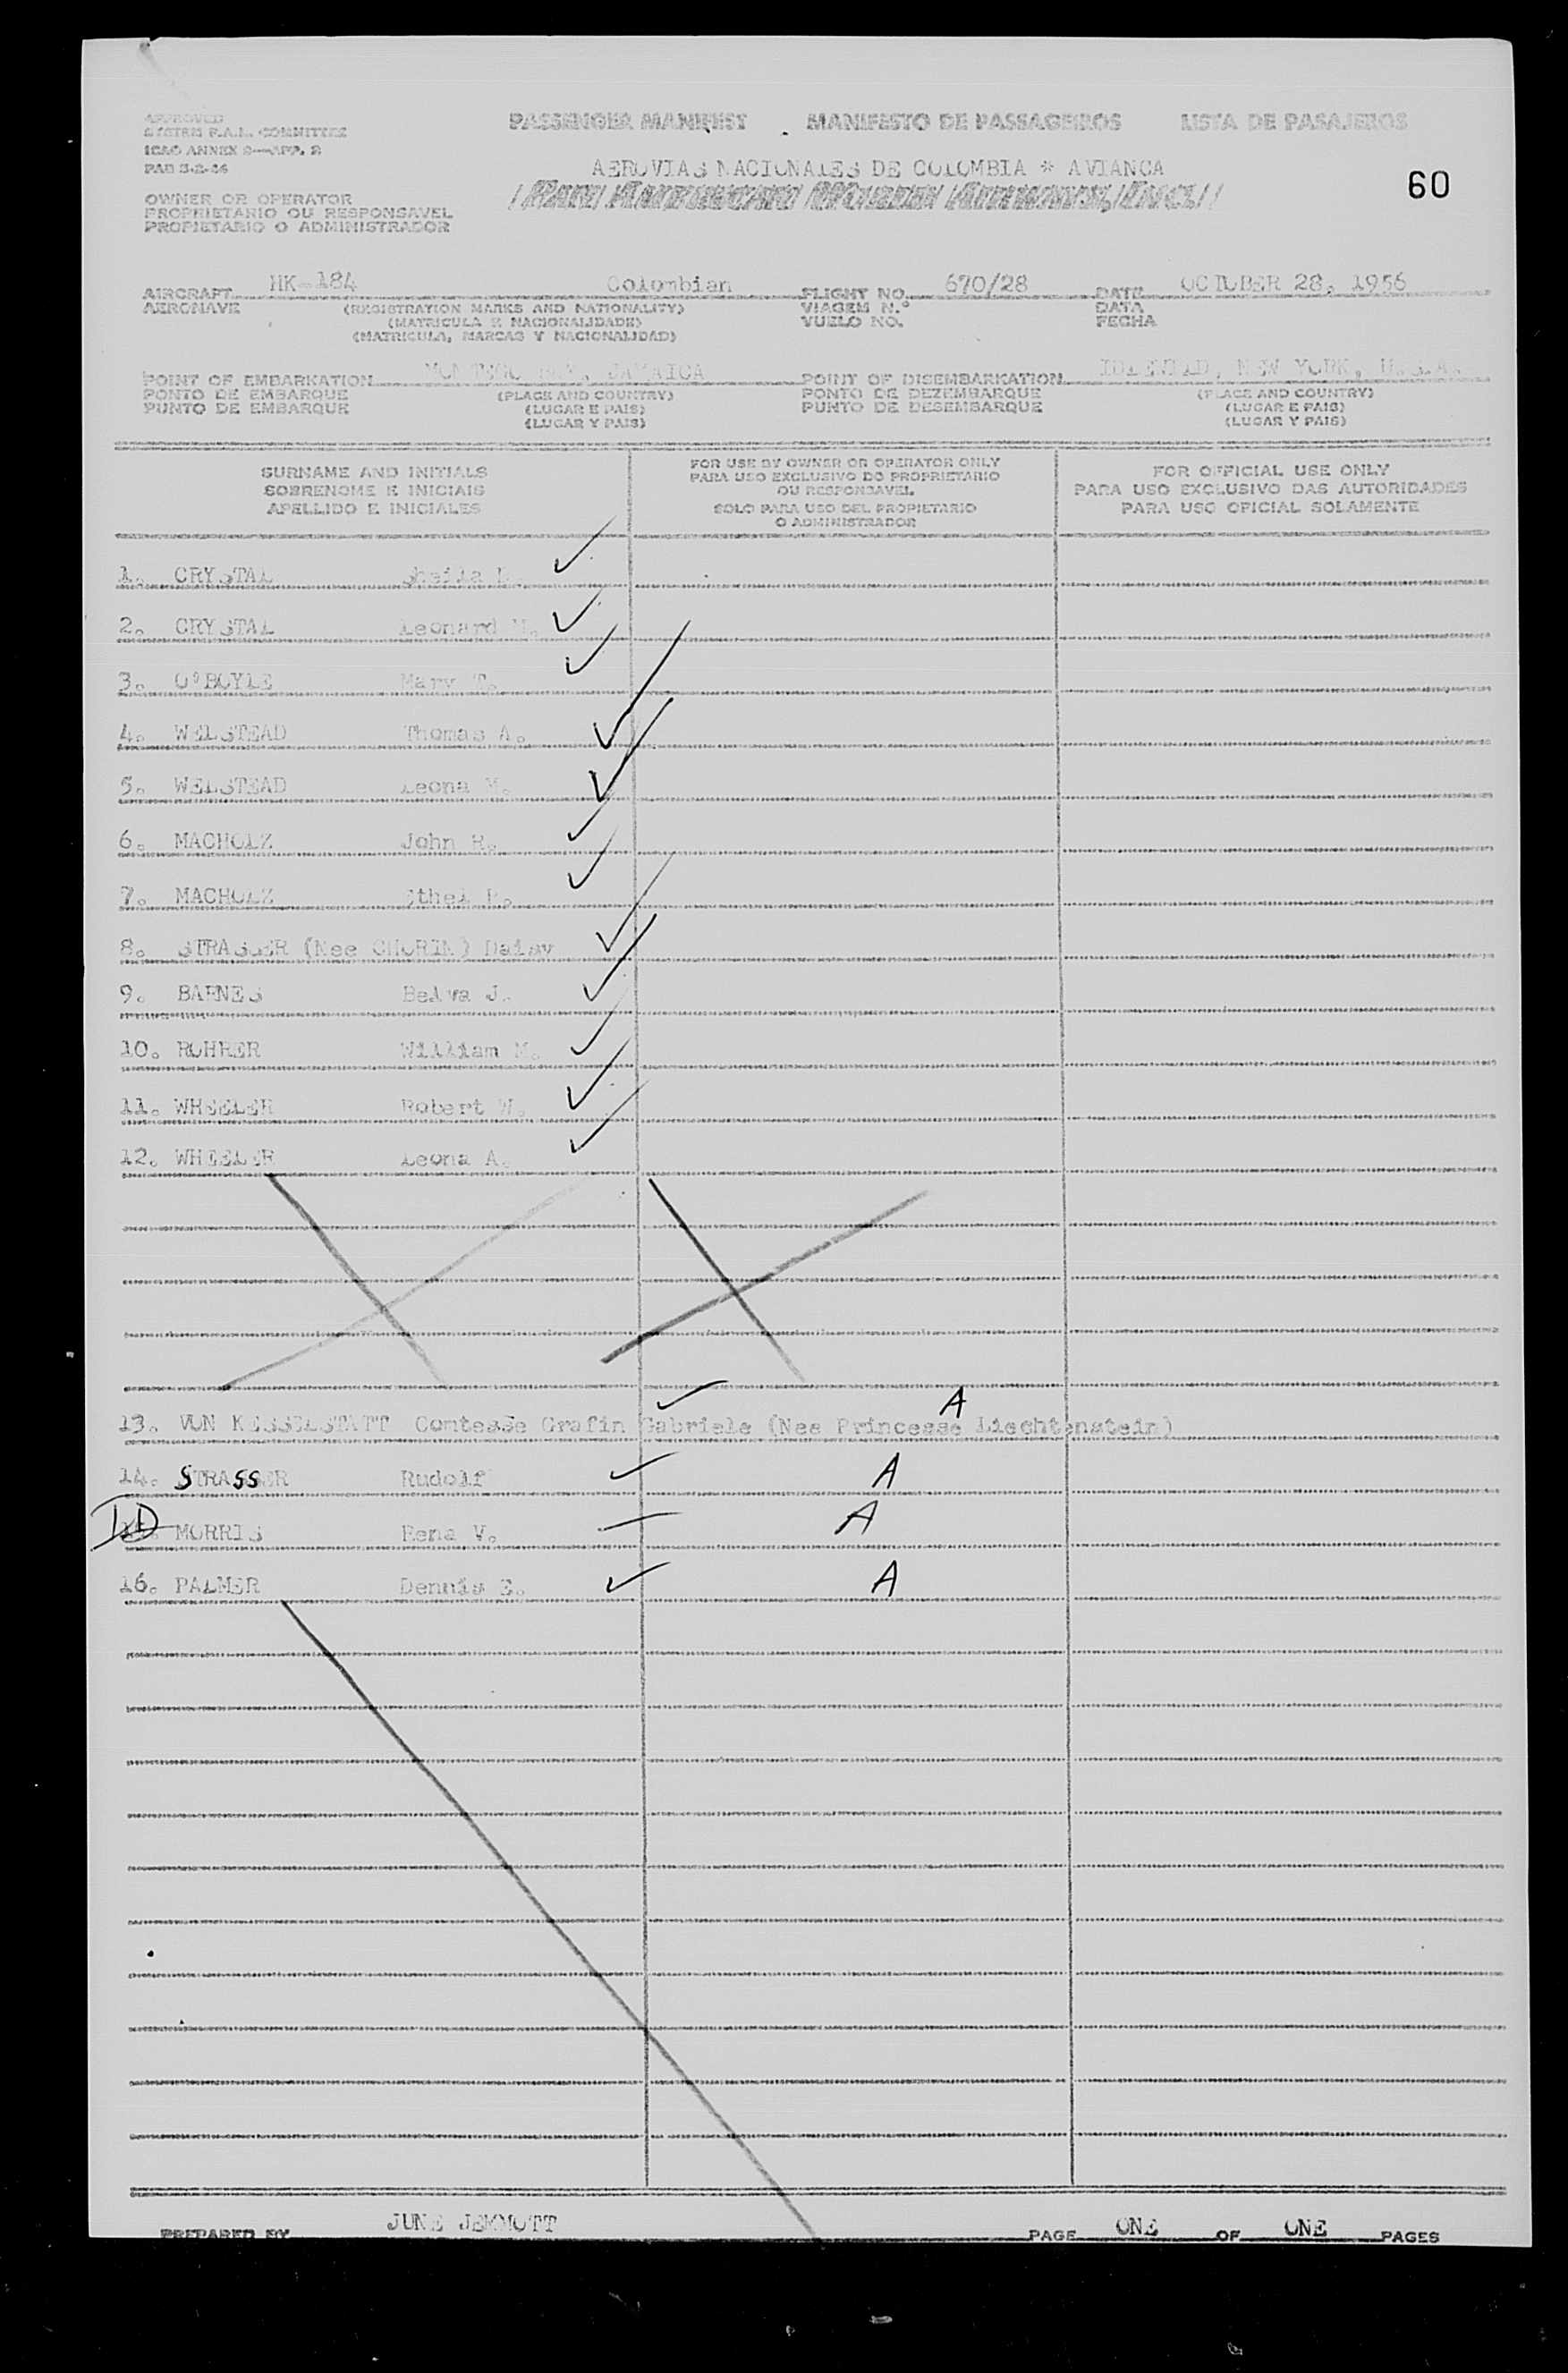 APPROVED
SYSTEM F.A.L. COMMITTEE
ICAO ANNEX 9—APP. 2
PASSENGER MANIFEST MANIFESTO DE PASSAGEIROS LISTA DE PASAJEROS
AEROVIAS NACIONALES DE COLOMBIA * AVIANCA
60
OWNER OR OPERATOR
PROPRIETARIO OU RESPONSAVEL
PROPIETARIO O ADMINISTRADOR
AIRCRAFT HK-184 Colombian FLIGHT NO. 670/28 DATE OCTOBER 28, 1956
AERONAVE (REGISTRATION MARKS AND NATIONALITY) VIAGEM N.° DATA
(MATRICULA E NACIONALIDADE) VUELO NO. FECHA
(MATRICULA, MARCAS Y NACIONALIDAD)
POINT OF EMBARKATION MONTEGO BAY, JAMAICA POINT OF DISEMBARKATION IDLEWILD, NEW YORK, U.S.A.
PONTO DE EMBARQUE (PLACE AND COUNTRY) PONTO DE DEZEMBARQUE (PLACE AND COUNTRY)
PUNTO DE EMBARQUE (LUGAR E PAIS) PUNTO DE DESEMBARQUE (LUGAR E PAIS)
(LUGAR Y PAIS) (LUGAR Y PAIS)
SURNAME AND INITIALS
SOBRENOME E INICIAIS
APELLIDO E INICIALES
FOR USE BY OWNER OR OPERATOR ONLY
PARA USO EXCLUSIVO DO PROPRIETARIO
OU RESPONSAVEL
SOLO PARA USO DEL PROPIETARIO
O ADMINISTRADOR
FOR OFFICIAL USE ONLY
PARA USO EXCLUSIVO DAS AUTORIDADES
PARA USO OFICIAL SOLAMENTE
1. CRYSTAL Sheila
2. CRYSTAL Leonard
3. O'BOYLE Mary T.
4. WELSTEAD Thomas A.
5. WELSTEAD Leona M.
6. MACHOLZ John R.
7. MACHOLZ Ethel
8. STRASSER (Nee CHORIN) Daisy
9. BARNES Belva J.
10. ROHRER William M.
11. WHEELER Robert W.
12. WHEELER Leona A.
13. VON KESSELSTATT Contesse Grafin Gabriele (Nee Princesse Liechtenstein) A
14. STRASSER Rudolf A
15. MORRIS Rena V. A
16. PALMER Dennis E. A
PREPARED BY JUNE JEMMOTT PAGE ONE OF ONE PAGES